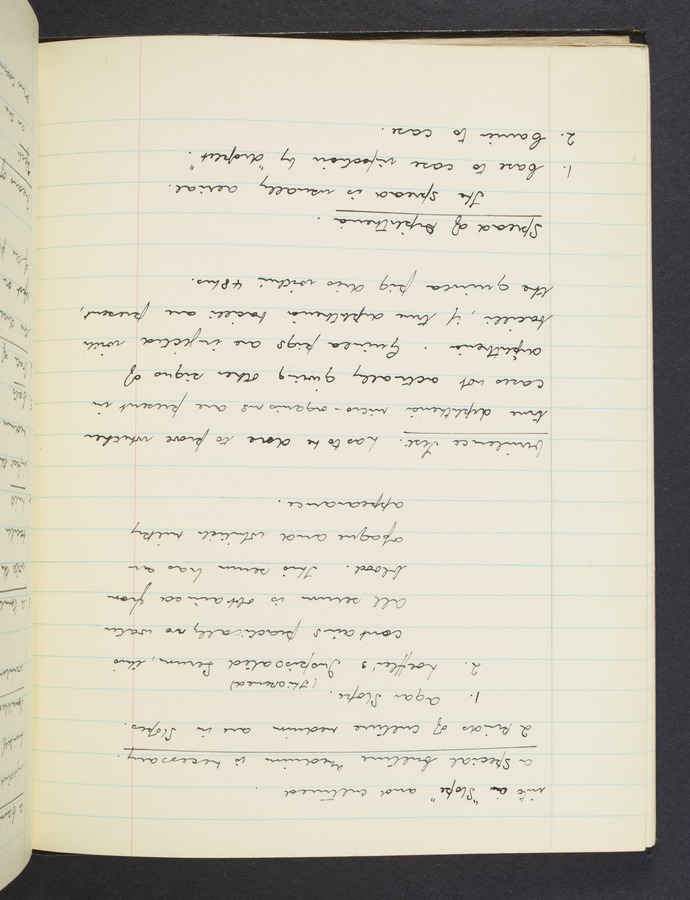 into a "Slope" and cultured.
a Special Culture Medium is necessary.
2 kinds of culture medium are in Slopes.
1. Agar Slope.
(thickened)
2. Loeffler's Inspissated Serum, this
contains practically no water.
All serum is obtained from
blood. This serum has an
opaque and whitish milky
appearance.
Virulence Test: has to be done to prove whether
true diphtheria micro-organisms are present in
cases not actually giving other signs of
diphtheria. Guinea pigs are injected with
bacilli, if true diphtheria bacilli are present,
the guinea pig dies within 48hrs.
Spread of Diphtheria.
The Spread is usually aerial.
1. Case to case infection by "droplet".
2. Carrier to case.